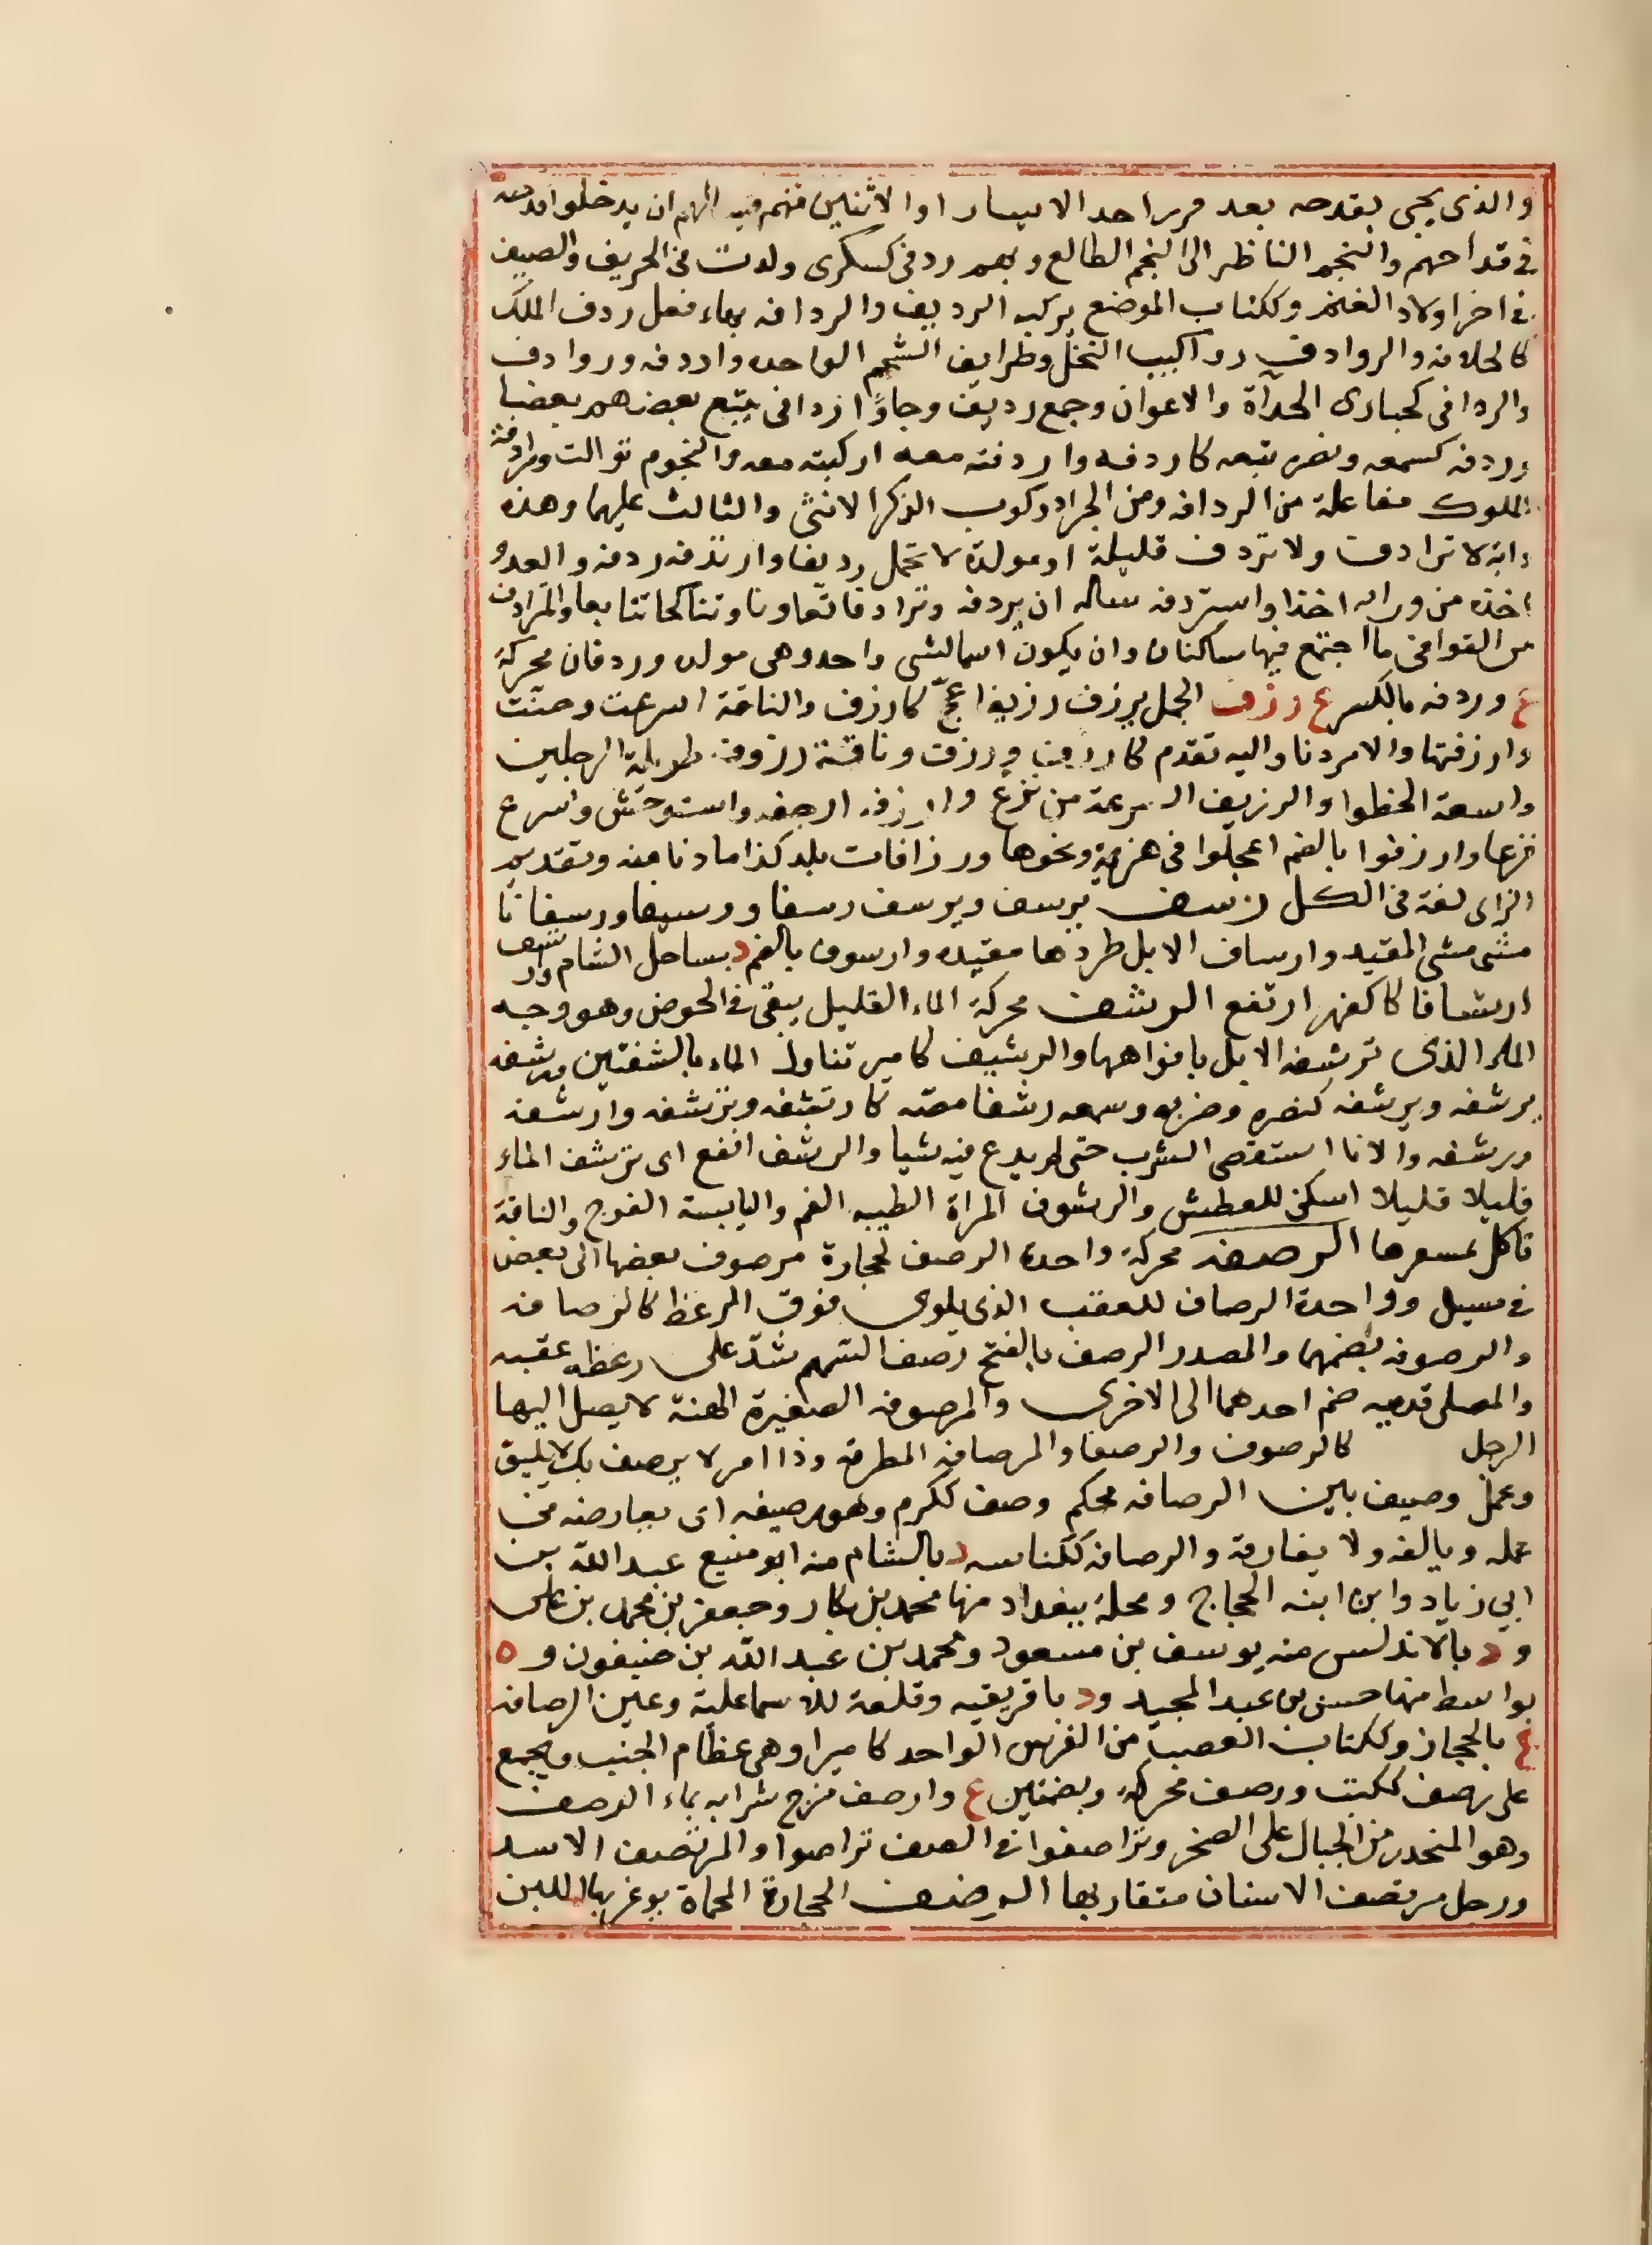 والذى يجى بقدحه بعد فوز احد الايسار او الاثنين منهم فيسالهم ان يدخلوا قدحه
فى قداحهم والنجم الناظر الى النجم الطالع وبهم ردفى كسكرى ولدت فى الخريف والصيف
فى اخر اولاد الغنم وككتاب الموضع يركبه الرديف والردافه بهاء فعل ردف الملك
كالخلافه والروادف رواكيب النخل وطرايق الشحم الواحده رادفه وروادف
والردافى كحبارى الحداة والاعوان وجمع رديف وجاؤا ردافى يتبع بعضهم بعضا
وردفه كسمعه ونصره تبعه كاردفه واردفته معه اركبته معه والنجوم توالت ومرادفة
الملوك مفاعلة من الردافه ومن الجراد ركوب الذكر الانثى والثالث عليهما وهذه
دابه لا ترادف ولا تردف قليلة او مولدة لا تحمل رديفا وارتدفه ردفه والعدو
اخذه من ورايه اخذا واستردفه ساله ان يردفه وترادفا تعاونا وتناكحا تتابعا والمترادف
من القوافى ما اجتمع فيها ساكنان وان يكون اسما لشى واحد وهى مولده وردفان محركة
ع وردفه بالكسر ع رزف الجمل يرزف رزيفا عجّ كارزف والناقة اسرعت وخبّت
وارزفتها والامر دنا واليه تقدم كارزف ورزف وناقة رزوف طويلة الرجلين
واسعة الخطوا والرزيف السرعة من فزع وارزف ارجف واستوحش واسرع
فزعا وارزفوا بالضم اعجلوا فى هزيمة ونحوها ورزافات بلد كذا ما دنا منه وتقديم
الزاى لغة فى الكل رسف يرسف ويرسف رسفا ورسيفا ورسفانا
مشى مشى المقيد وارساف الابل طردها مقيده وارسوف بالضم د بساحل الشام وارتسف
ارتسافا كاكفهر ارتفع الرشف محركة الماء القليل يبقى فى الحوض وهو وجه
الماء الذى ترشفه الابل بافواهها والرشيف كامير تناول الماء بالشفتين ورشفه
يرشفه ويرشفه كنصره وضربه وسمعه رشفا مصه كارتشفه وترشفه وارشفه
ورشفه والانا استقصى الشرب حتى لم يدع فيه شيا والرشف انقع اى ترشف الماء
قليلا قليلا اسكن للعطش والرشوف المراة الطيبه الفم واليابسة الفرج والناقة
تاكل بمسفرها الرصفه محركة واحدة الرصف لحجارة مرصوف بعضها الى بعض
فى مسيل وواحدة الرصاف للعقب الذى يلوى فوق الرعظ كالرصافه
والرصوفه بضمهما والمصدر الرصف بالفتح رصف السهم شدّ على رعظه عقبه
والمصلى قدميه ضم احدهما الى الاخرى والمرصوفه الصغيرة الهنة لا يصل اليها
الرجل كالرصوف والرصفا والمرصافه المطرقة وذا امر لا يرصف بك لا يليق
وعمل رصيف بين الرصافه محكم رصف ككرم وهو رصيفه اى يعارضه فى
عمله ويالفه ولا يفارقه والرصافه ككناسه د بالشام منه ابو منيع عبد الله بن
ابي زياد وابن ابنه الحجاج ومحلة ببغداد منها محمد بن بكار وجعفر بن محمد بن على
و د بالاندلس منه يوسف بن مسعود ومحمد بن عبد الله بن ضيفون و ه
بواسط منها حسن بن عبد المجيد و د بافريقيه وقلعة للاسماعلية وعين الرصافه
ع بالحجاز وككتاب العصب من الفرس الواحد كامير او هى عظام الجنب ويجمع
على رصف ككتب ورصف محركة وبضمتين ع وارصف مزج شرابه بماء الرصف
وهو المنحدر من الجبال على الصخر وتراصفوا فى الصف تراصوا والمرتصف الاسد
ورجل مرتصف الاسنان متقاربها الرضف الحجارة المحماة يوغر بها اللبن